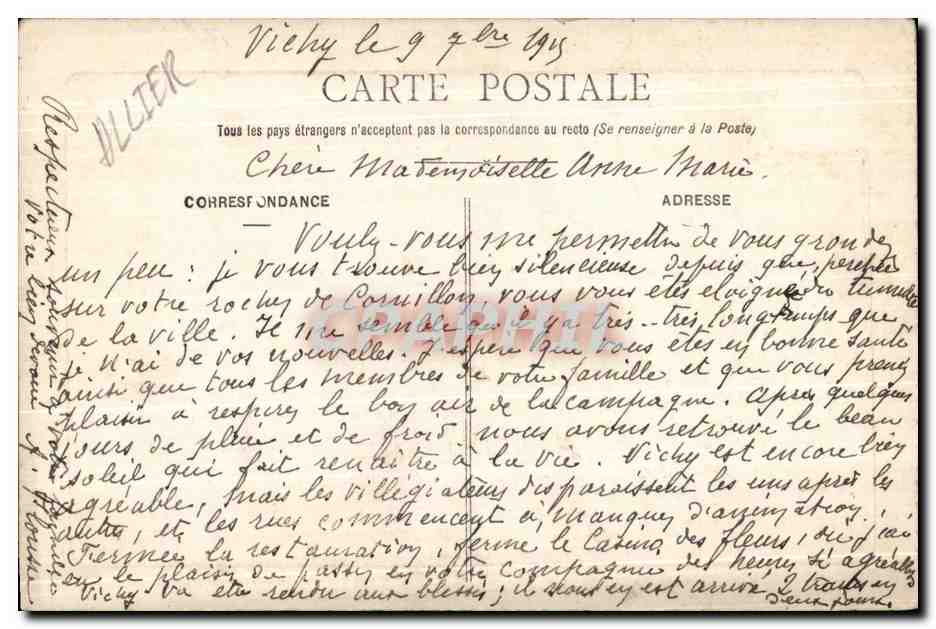 Vichy le 9 7bre 1915
ULLIER
CARTE POSTALE
Tous les pays étrangers n'acceptent pas la correspondance au recto (Se renseigner à la Poste)
Chère Mademoiselle Anne Marie.
CORRESPONDANCE
ADRESSE
Vouly-vous me permettre de vous gronder
un peu : je vous trouve bien silencieuse depuis que, perchée
sur votre rocher de Cornillon, vous vous êtes éloignée du tumulte
de la ville. Il me semble qu'il y a très-très longtemps que
je n'ai de vos nouvelles. J'espère que vous êtes en bonne santé
ainsi que tous les membres de votre famille et que vous prenez
plaisir à respirer le bon air de la campagne. Après quelques
jours de pluie et de froid nous avons retrouvé le beau
soleil qui fait renaître à la vie. Vichy est encore bien
agréable, mais les villégiateurs disparaissent les uns après les
autres, et les rues commencent à manquer d'animation.
Fermée la restauration, fermé le Casino des fleurs, où j'ai
eu le plaisir de passer en votre compagnie des heures si agréables
Vichy va être rendu aux blessés ; il nous en est arrivé 2 trains en
deux jours.
Respectueux souvenir à votre famille
Votre bien dévoué
CPAPHIL